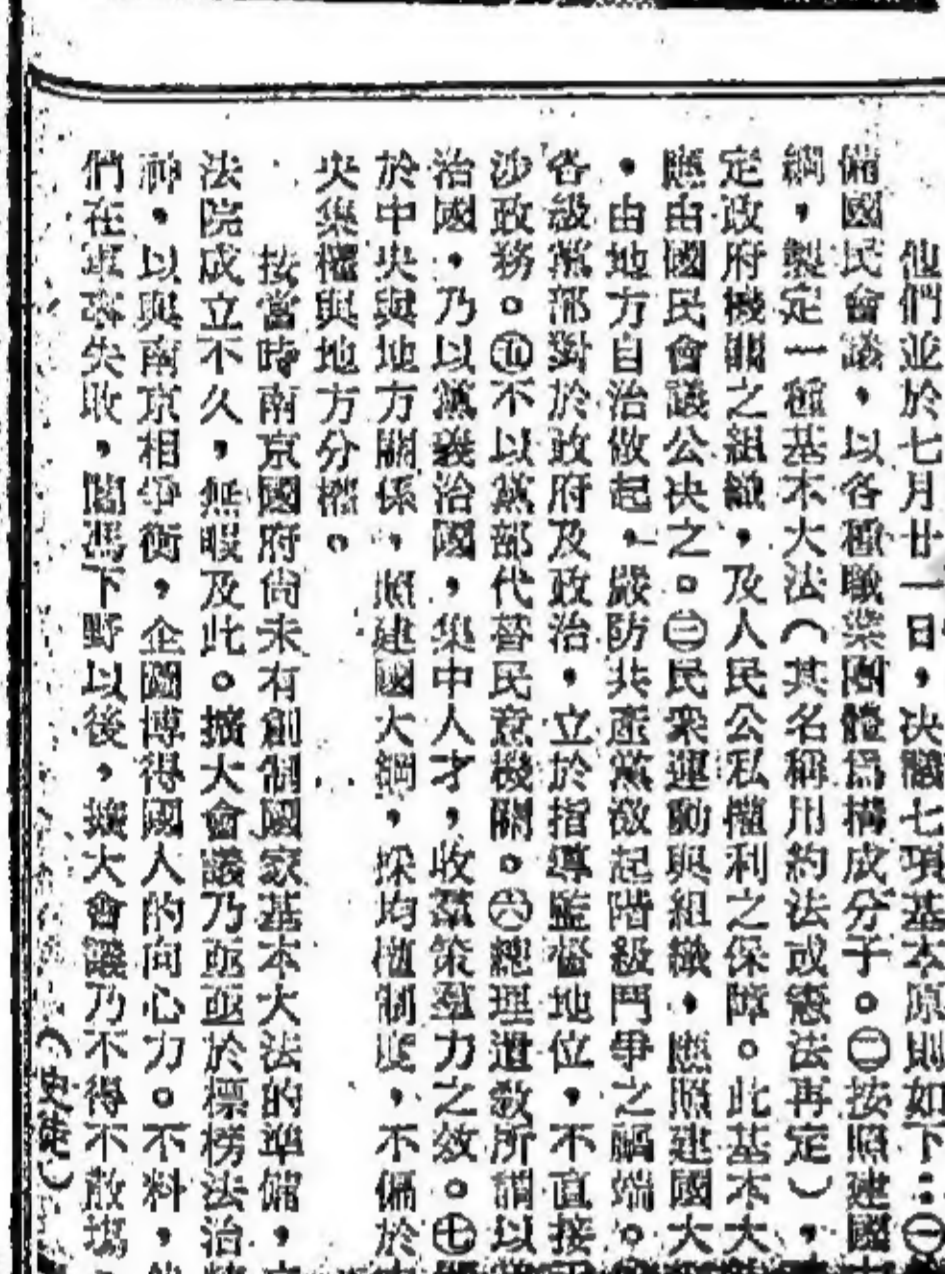 他們並於七月廿一日，決議七項基本原則如下：㊀
備國民會議，以各種職業團體爲構成分子。㊁按照建國
綱，製定一種基本大法（其名稱用約法或憲法再定），
定政府機關之組織，及人民公私權利之保障。此基本大
應由國民會議公決之。㊂民衆運動與組織，應照建國大
，由地方自治做起，嚴防共產黨激起階級鬥爭之禍端。
各級黨部對於政府及政治，立於指導監督地位，不直接
涉政務。㊄不以黨部代替民意機關。㊅總理遺敎所謂以
治國，乃以黨義治國，集中人才，收羣策羣力之效。㊆
於中央與地方關係，照建國大綱，採均權制度，不偏於
央集權與地方分權。
按當時南京國府尙未有創制國家基本大法的準備，
法院成立不久，無暇及此。擴大會議乃亟亟於標榜法治
神，以與南京相爭衡，企圖博得國人的向心力。不料，
們在軍事失敗，閻馮下野以後，擴大會議乃不得不散場
（史徒）